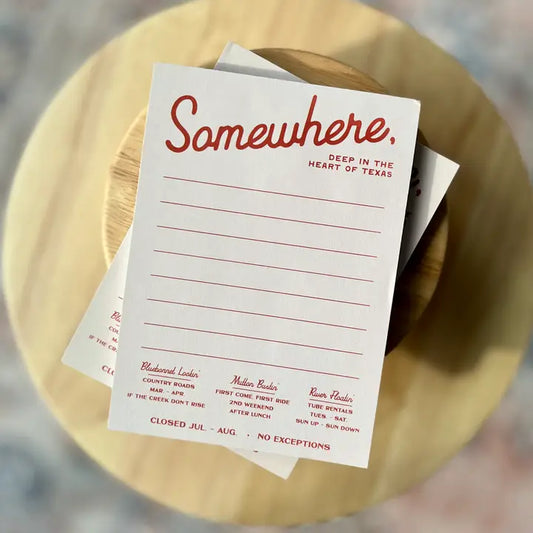 Somewhere,
DEEP IN THE
HEART OF TEXAS
Bluebonnet Lookin'
COUNTRY ROADS
MAR. - APR.
IF THE CREEK DON'T RISE
Mutton Bustin'
FIRST COME, FIRST RIDE
2ND WEEKEND
AFTER LUNCH
River Floatin'
TUBE RENTALS
TUES. - SAT.
SUN UP - SUN DOWN
CLOSED JUL. - AUG. • NO EXCEPTIONS
Bluebon
COUNT
MAR
IF THE CRE